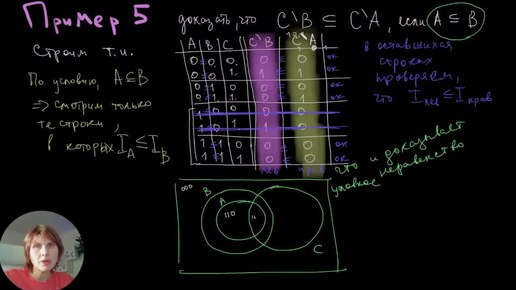 Пример 5
доказать, что C\B ⊆ C\A, если A ⊆ B
Строим т.и.
По условию, A⊆B
⇒ смотрим только
те строки,
в которых I_A ≤ I_B
A B C C\B C\A
0 0 0 0 0 ок
0 0 1 1 1 ок
0 1 0 0 0 ок
0 1 1 0 1 ок
1 0 0 0 0
1 0 1 1 0
1 1 0 0 0 ок
1 1 1 0 0 ок
лев прав
в оставшихся
строках
проверяем,
что I_лев ≤ I_прав
что и доказывает
условное неравенство
000
B
A
110
C